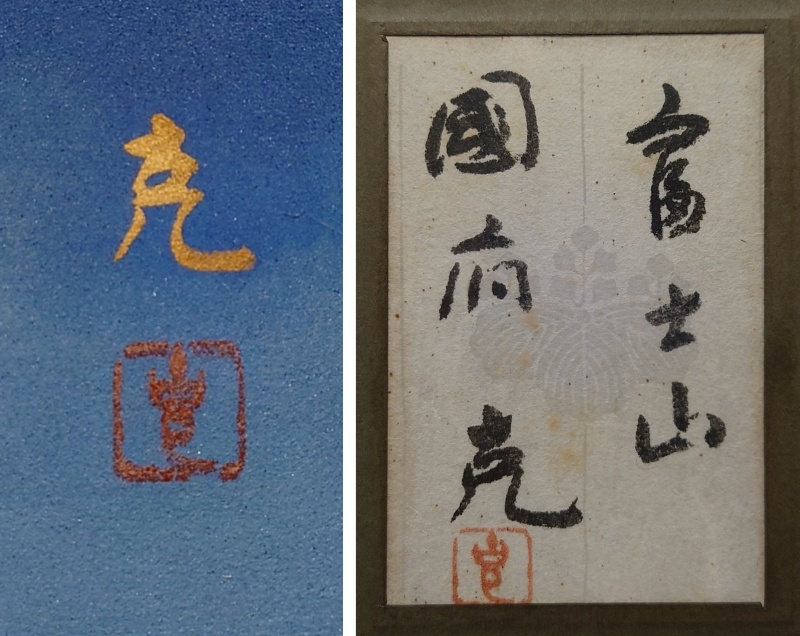 克
富士山
國府克